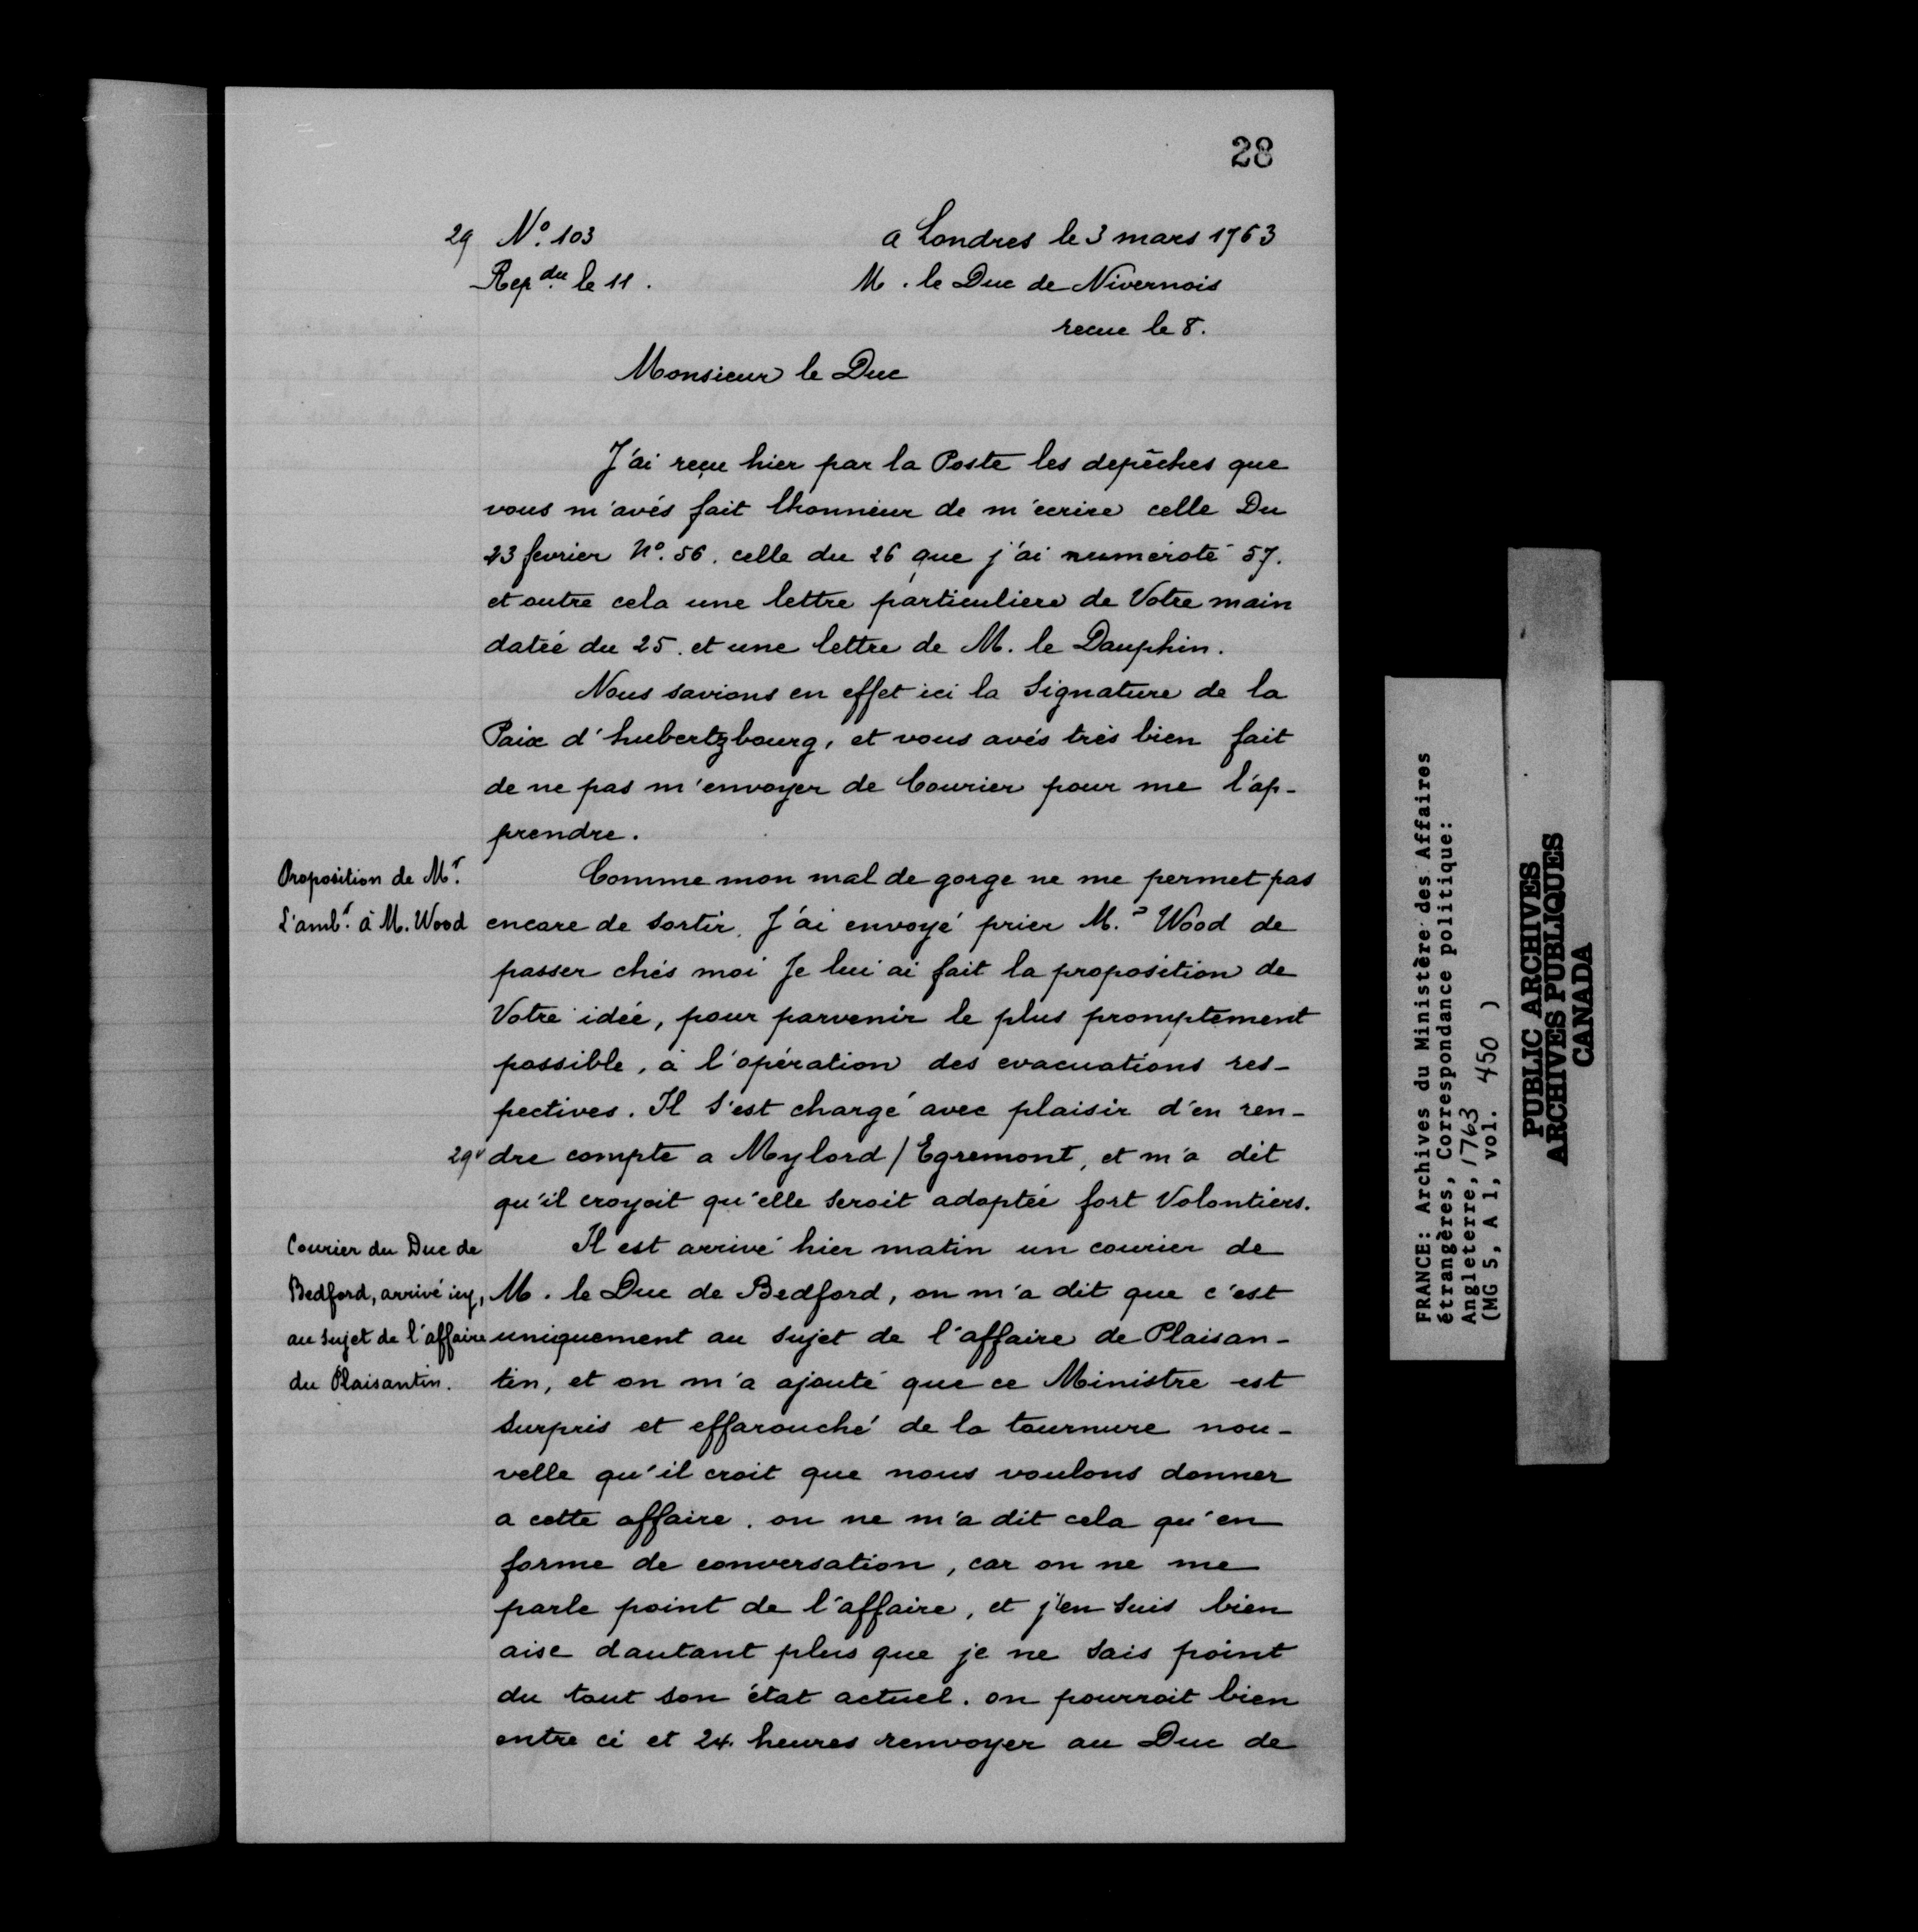 28
29 Nº. 103 a Londres le 3 mars 1763
Rep.due le 11. M. le Duc de Nivernois
recue le 8.
Monsieur le Duc
J'ai reçu hier par la Poste les depêches que
vous m'avés fait lhonneur de m'écrire celle Du
23 fevrier Nº. 56. celle du 26 que j'ai numéroté 57.
et outre cela une lettre particuliere de Votre main
datée du 25. et une lettre de M. le Dauphin.
Nous savions en effet ici la Signature de la
Paix d'hubertzbourg, et vous avés très bien fait
de ne pas m'envoyer de Courier pour me l'ap-
prendre.
Proposition de Mr.
L'ambr. à M. Wood
Comme mon mal de gorge ne me permet pas
encore de sortir, J'ai envoyé prier M. Wood de
passer chés moi Je lui ai fait la proposition de
Votre idée, pour parvenir le plus promptement
possible, à l'opération des evacuations res-
pectives. Il s'est chargé avec plaisir d'en ren-
29v dre compte a Mylord / Egremont, et m'a dit
qu'il croyoit qu'elle seroit adoptée fort Volontiers.
Courier du Duc de
Bedford, arrivé icy,
au sujet de l'affaire
du Plaisantin.
Il est arrivé hier matin un courier de
M. le Duc de Bedford, on m'a dit que c'est
uniquement au sujet de l'affaire de Plaisan-
tin, et on m'a ajouté que ce Ministre est
surpris et effarouché de la tournure nou-
velle qu'il croit que nous voulons donner
a cette affaire. on ne m'a dit cela qu'en
forme de conversation, car on ne me
parle point de l'affaire, et j'en suis bien
aise dautant plus que je ne sais point
du tout son état actuel. on pourroit bien
entre ci et 24. heures renvoyer au Duc de
FRANCE: Archives du Ministère des Affaires
étrangères, Correspondance politique:
Angleterre, 1763
(MG 5, A 1, vol. 450 )
PUBLIC ARCHIVES
ARCHIVES PUBLIQUES
CANADA